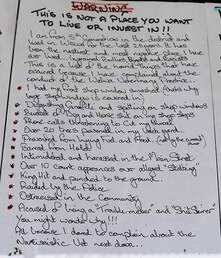 WARNING
THIS IS NOT A PLACE YOU WANT
TO LIVE OR INVEST IN!!
I am from 5th Generation in the district and
lived in for the last 25 years. It was
been the and most negative place I have
ever lived. Ingrained Bullies, Bigots and Racists
This is a list of B.S. and that have
occurred because I have complained about the
conduct of the Veterinary
I had my front shop window smashed (that's why
large shop window is covered in)
Disgusting Graffiti and spitting on shop windows
Bucket of Pig and Horse shit on my shop steps
Phone calls threatening to Cut my throat
Over 20 trees poisoned in my back yard.
Poisoned from buying Food and
Barred from Hotel
Intimidated and harassed in the Main Street
Over 10 court appearances over alleged "Stalking"
King Hit and punched to the ground.
Raided by the Police
Ostracised in the Community
Accused of being a "Trouble maker" and "Shit Stirrer"
You might wonder Why!!!
All because I dared to complain about the
Narcissistic Vet next door...